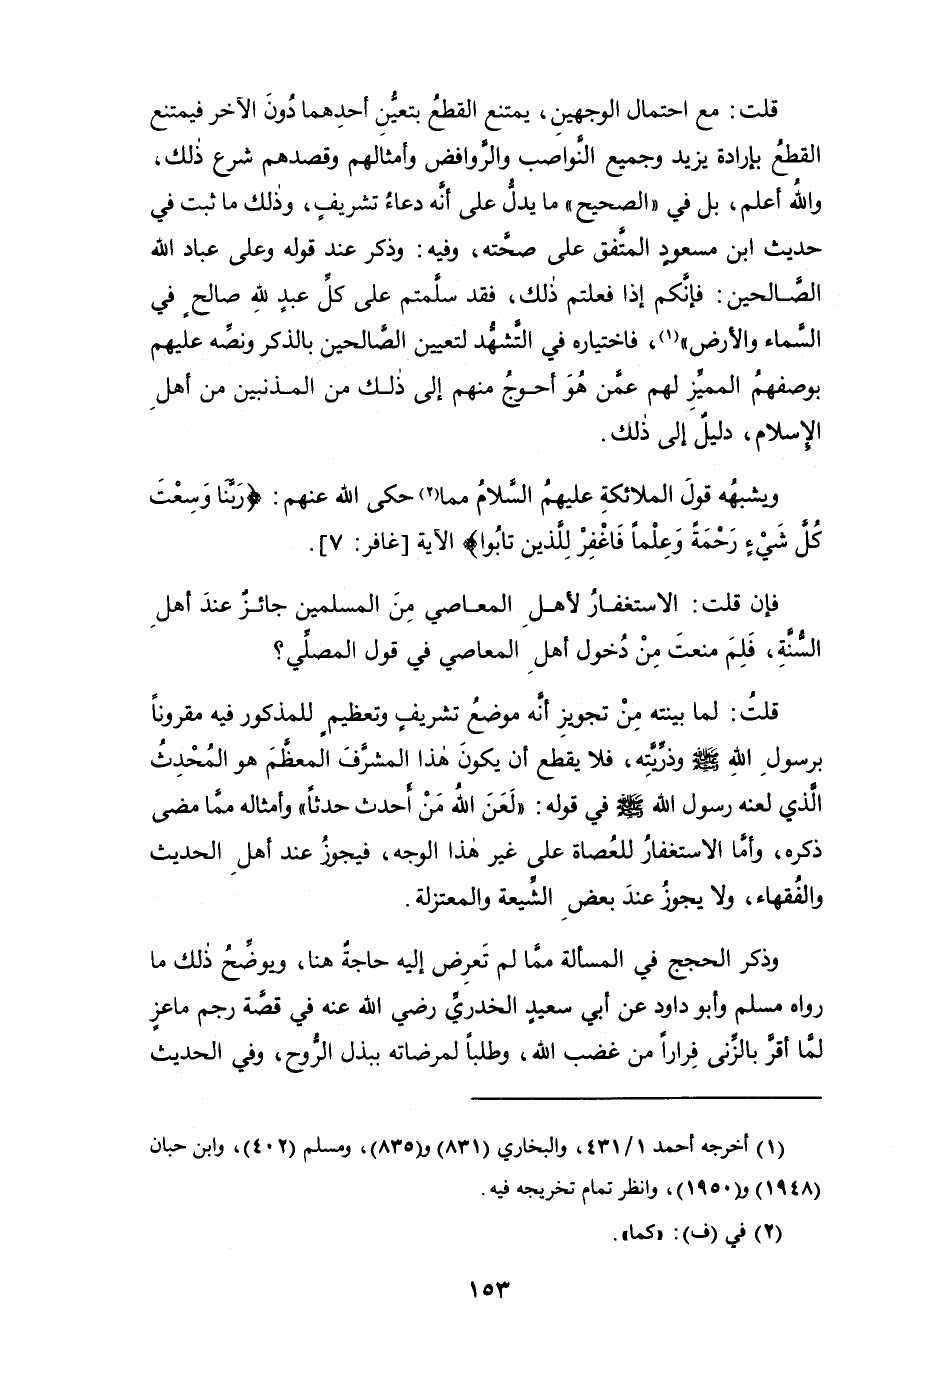 قلت: مع احتمال الوجهين، يمتنع القطعُ بتعيُّنِ أحدِهما دُونَ الآخر فيمتنع
القطعُ بإرادة يزيد وجميع النَّواصب والرَّوافض وأمثالهم وقصدهم شرع ذٰلك،
واللهُ أعلم، بل في «الصحيح» ما يدلُّ على أنَّه دعاءُ تشريفٍ، وذٰلك ما ثبت في
حديث ابن مسعودٍ المتَّفق على صحَّته، وفيه: وذكر عند قوله وعلى عباد الله
الصَّالحين: فإنَّكم إذا فعلتم ذٰلك، فقد سلَّمتم على كلِّ عبدٍ للهِ صالحٍ في
السَّماء والأرض»(١)، فاختياره في التَّشهُّد لتعيين الصَّالحين بالذكر ونصِّه عليهم
بوصفهمُ المميِّزِ لهم عمَّن هُوَ أحوجُ منهم إلى ذٰلك من المذنبين من أهلِ
الإسلام، دليلٌ إلى ذٰلك.
ويشبهُه قولَ الملائكةِ عليهمُ السَّلامُ مما(٢) حكى الله عنهم: ﴿رَبَّنَا وَسِعْتَ
كُلَّ شَيْءٍ رَحْمَةً وَعِلْماً فَاغْفِرْ لِلَّذين تابُوا﴾ الآية [غافر: ٧].
فإن قلت: الاستغفارُ لأهلِ المعاصي مِنَ المسلمين جائزٌ عندَ أهلِ
السُّنَّةِ، فَلِمَ منعتَ مِنْ دُخول أهلِ المعاصي في قول المصلِّي؟
قلتُ: لما بينته مِنْ تجويز أنَّه موضعُ تشريفٍ وتعظيمٍ للمذكور فيه مقروناً
برسولِ اللهِ ﷺ وذرِّيَّته، فلا يقطع أن يكونَ هٰذا المشرَّفَ المعظَّمَ هو المُحْدِثُ
الَّذي لعنه رسول الله ﷺ في قوله: «لَعَنَ اللهُ مَنْ أَحدث حدثاً» وأمثاله ممَّا مضى
ذكره، وأمَّا الاستغفارُ للعُصاة على غير هٰذا الوجه، فيجوزُ عند أهلِ الحديث
والفُقهاء، ولا يجوزُ عندَ بعضِ الشِّيعة والمعتزلة.
وذكر الحجج في المسألة ممَّا لم تَعرِض إليه حاجةٌ هنا، ويوضِّحُ ذٰلك ما
رواه مسلم وأبو داود عن أبي سعيدٍ الخدريِّ رضي الله عنه في قصَّة رجم ماعزٍ
لمَّا أقرَّ بالزِّنى فِراراً من غضب الله، وطلباً لمرضاته ببذل الرُّوح، وفي الحديث
(١) أخرجه أحمد ٤٣١/١، والبخاري (٨٣١) و(٨٣٥)، ومسلم (٤٠٢)، وابن حبان
(١٩٤٨) و(١٩٥٠)، وانظر تمام تخريجه فيه.
(٢) في (ف): «كما».
١٥٣